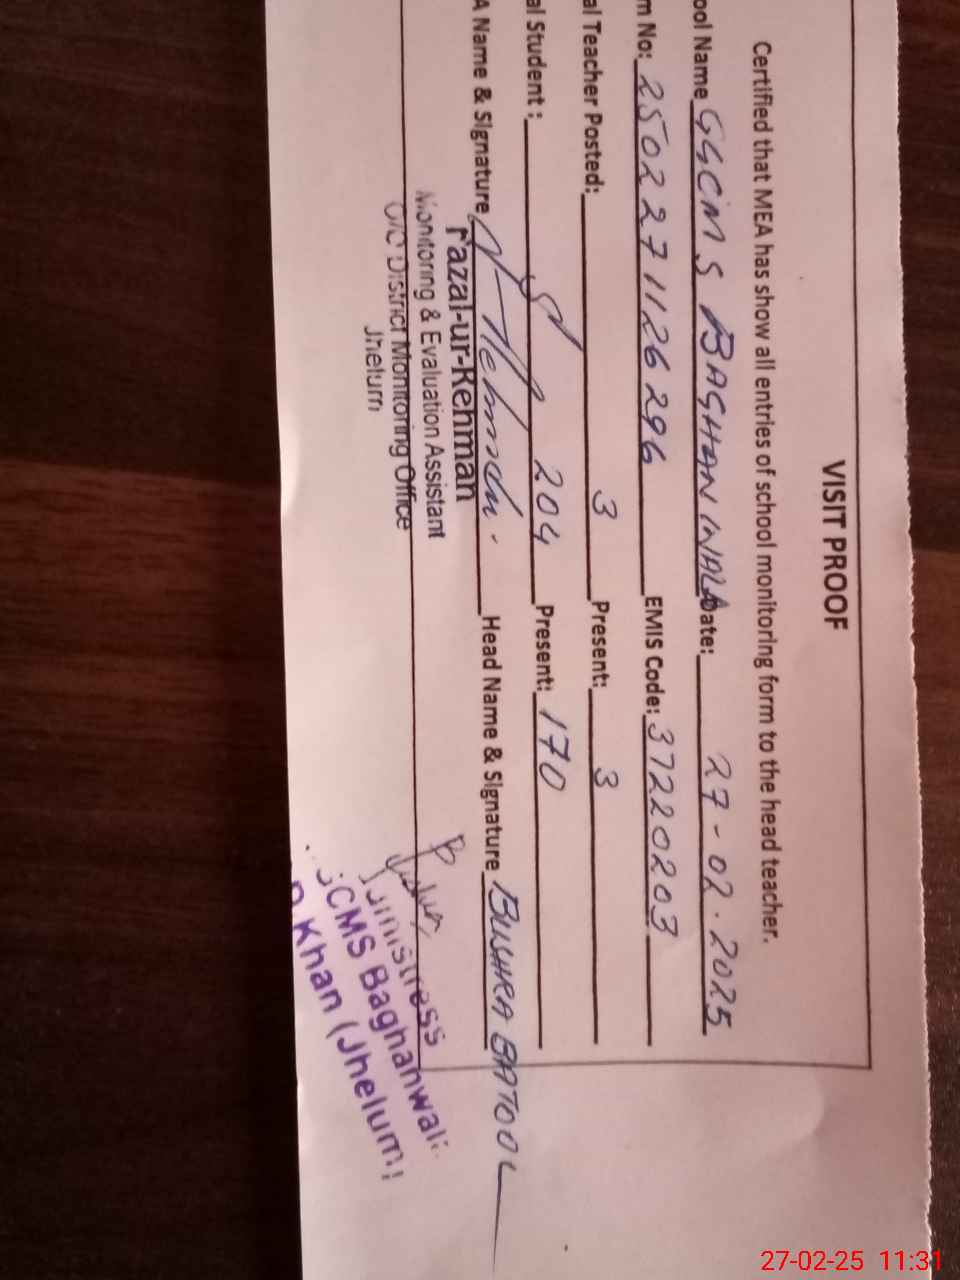 VISIT PROOF
Certified that MEA has show all entries of school monitoring form to the head teacher.
ool Name GGCMS BAGHANWALA Date: 27-02.2025
m No: 2502271126296 EMIS Code: 37220203
al Teacher Posted: 3 Present: 3
al Student: 204 Present: 170
A Name & Signature Head Name & Signature BUSHRA BATOOL
Fazal-ur-Rehman
Monitoring & Evaluation Assistant
O/O District Monitoring Office
Jhelum
mistress
GCMS Baghanwala
D Khan (Jhelum)
27-02-25 11:31